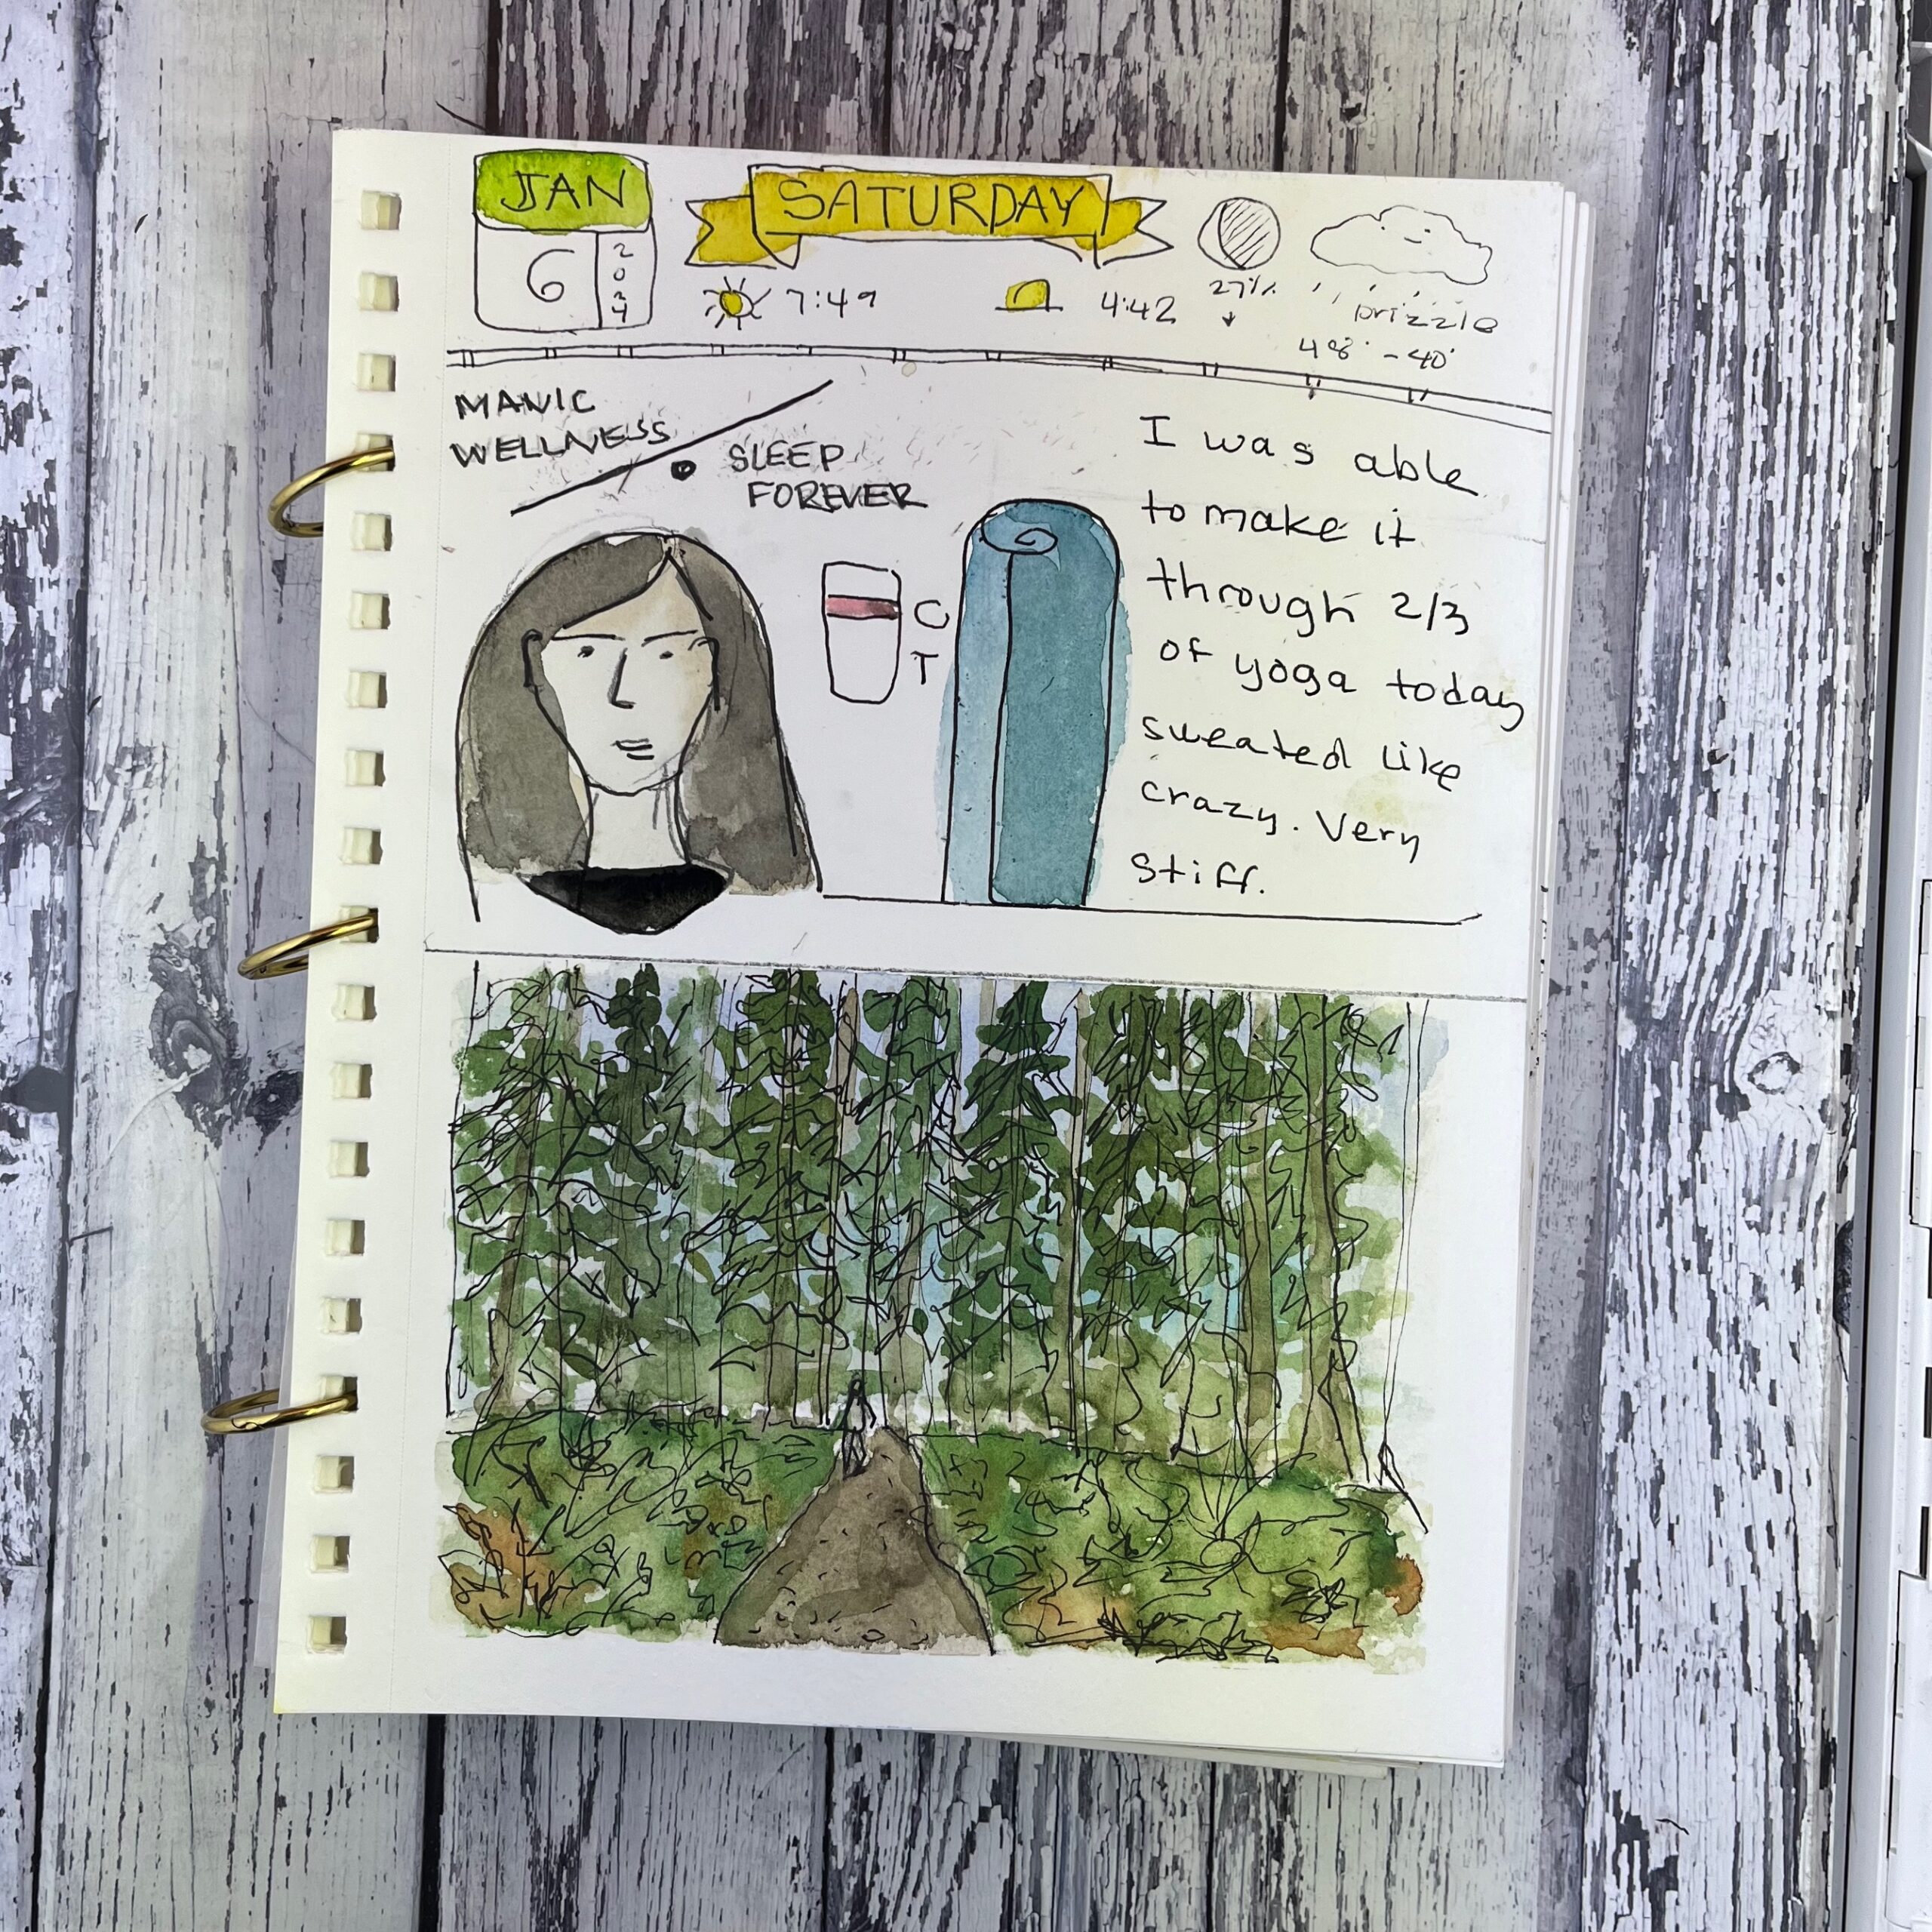 JAN
6
2024
SATURDAY
7:49
4:42
27%
Drizzle
48° - 40°
MANIC
WELLNESS
SLEEP
FOREVER
C
T
I was able
to make it
through 2/3
of yoga today
sweated like
crazy. Very
stiff.